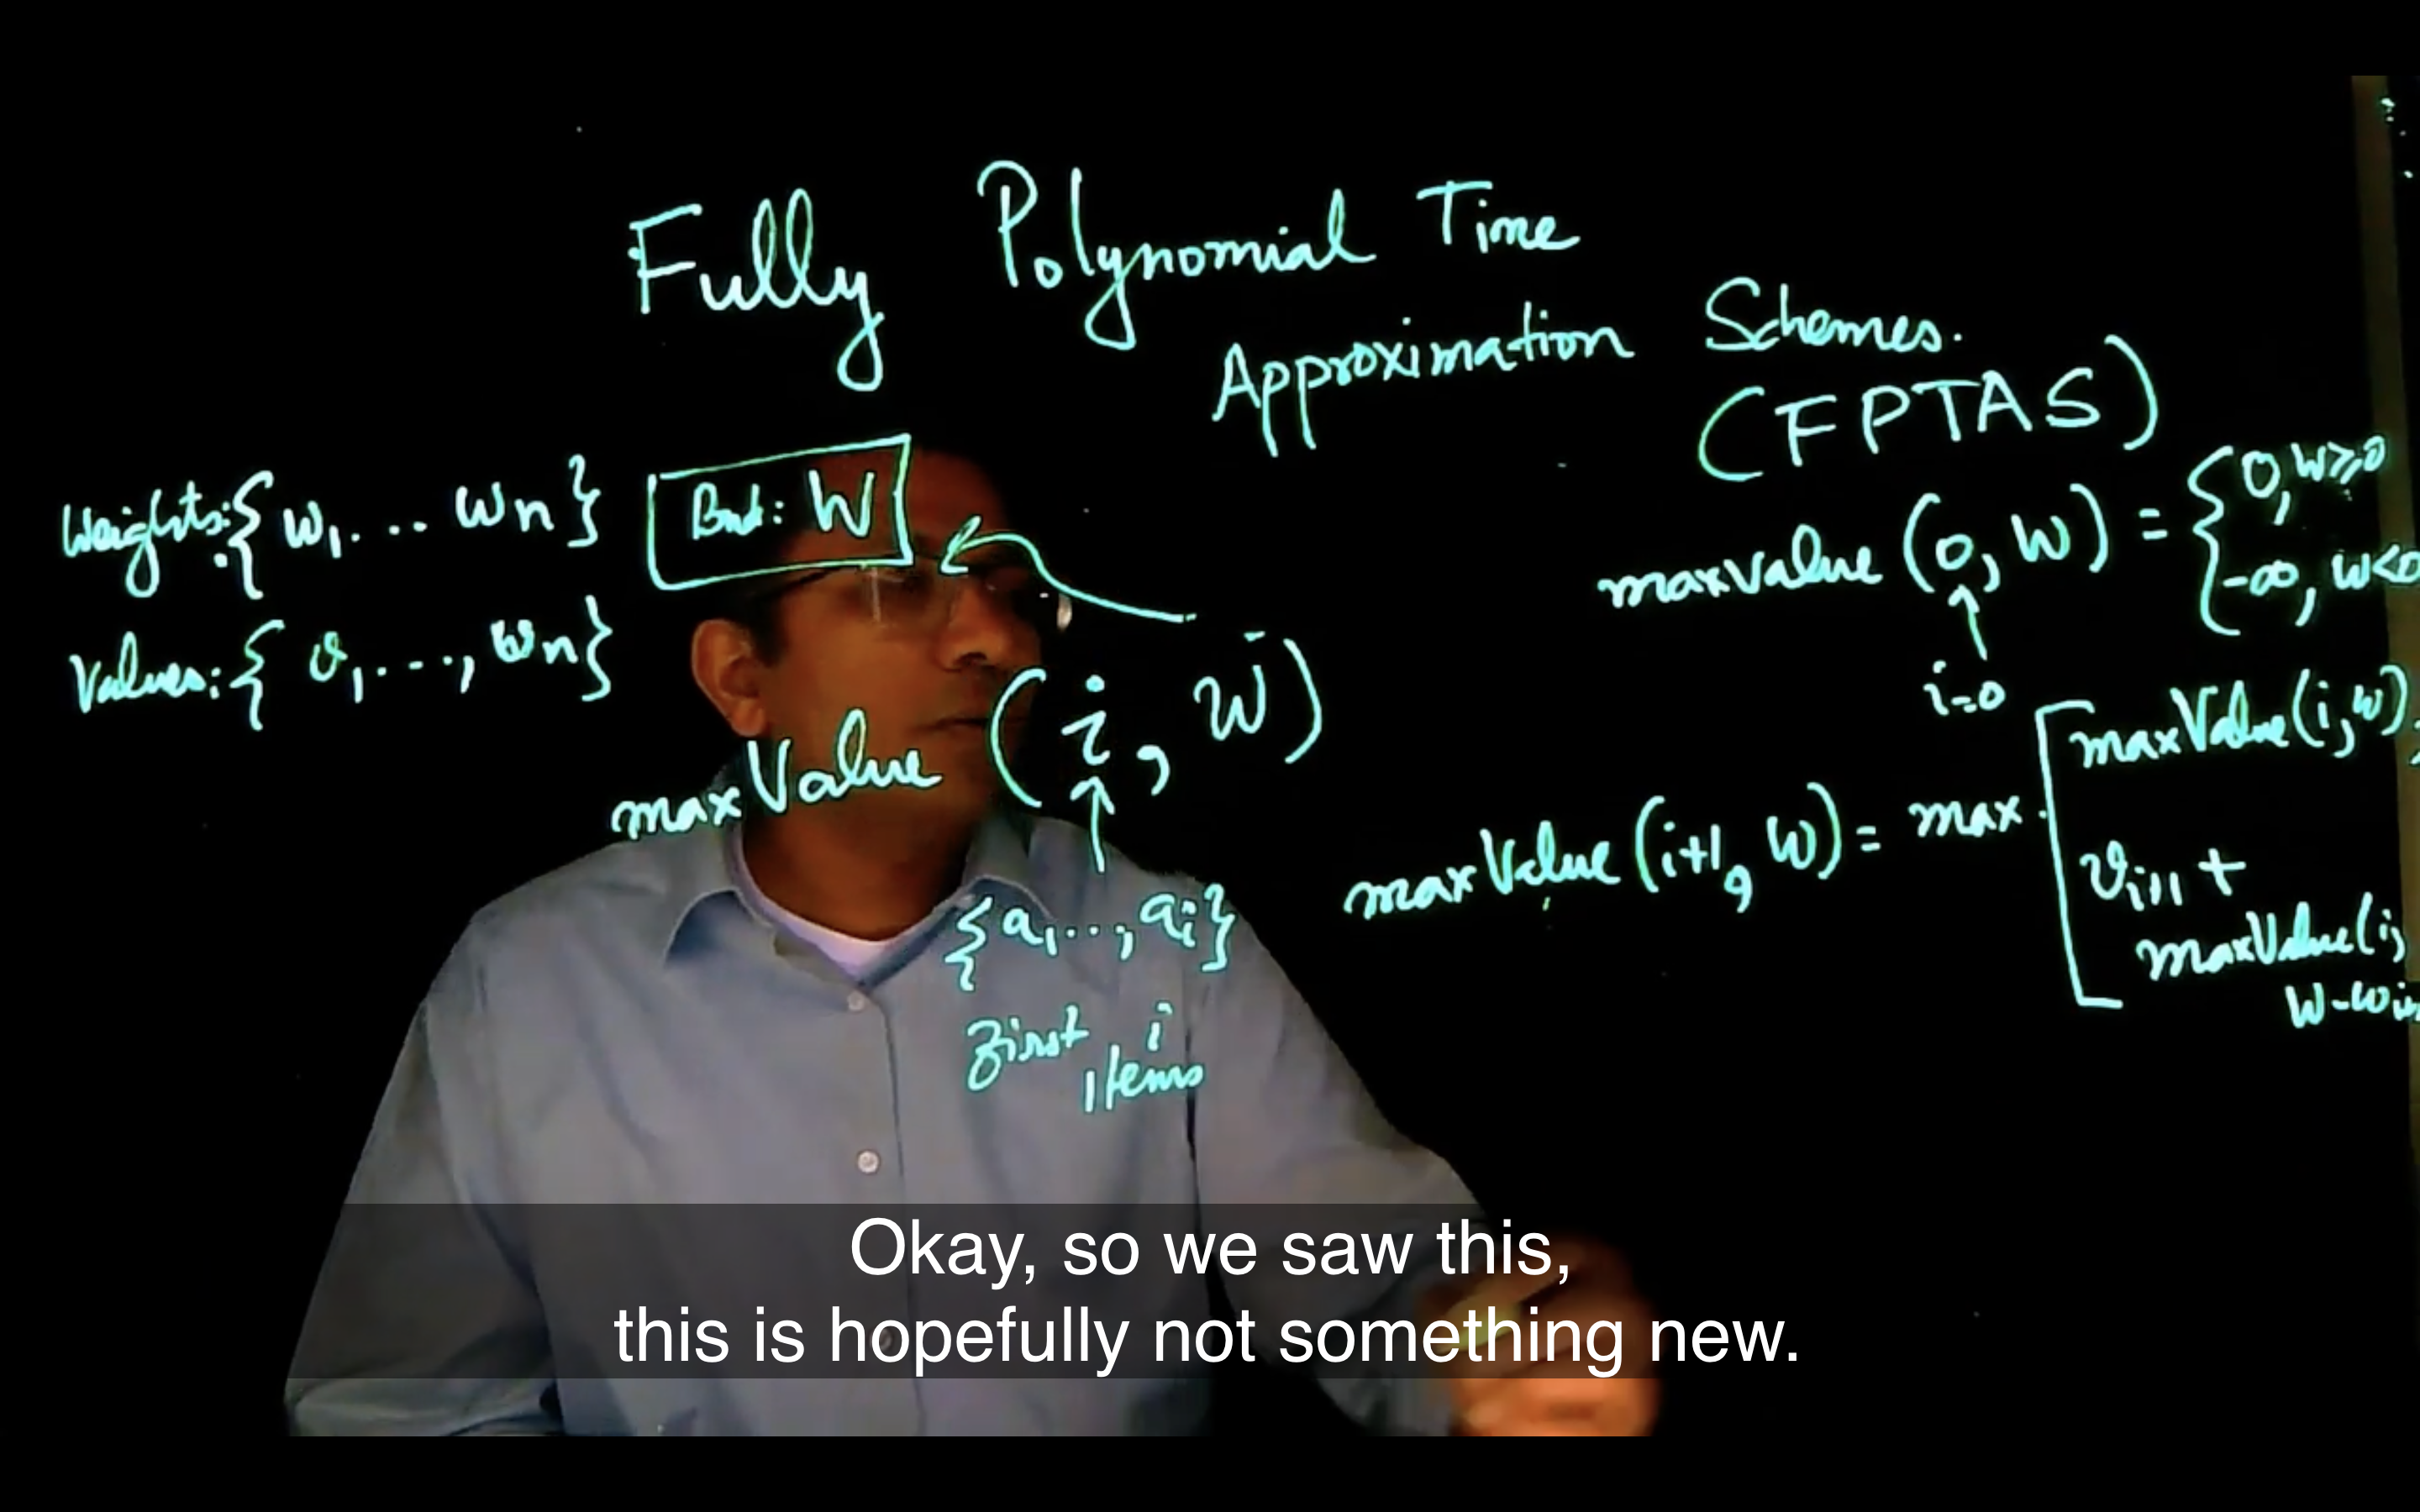 Fully Polynomial Time
Approximation Schemes.
(FPTAS)
Weights: { w₁. . . . wn }
Bnd: W
Values: { v₁. . . , wn }
maxValue (i, W)
{a₁. . , ai}
First i
Items
maxValue (0, W) = { 0, W⩾0
-∞, W<0
i=0
maxValue (i+1, W) = max [ maxValue(i, W),
vi+1 +
maxValue(i,
W-wi+
Okay, so we saw this,
this is hopefully not something new.